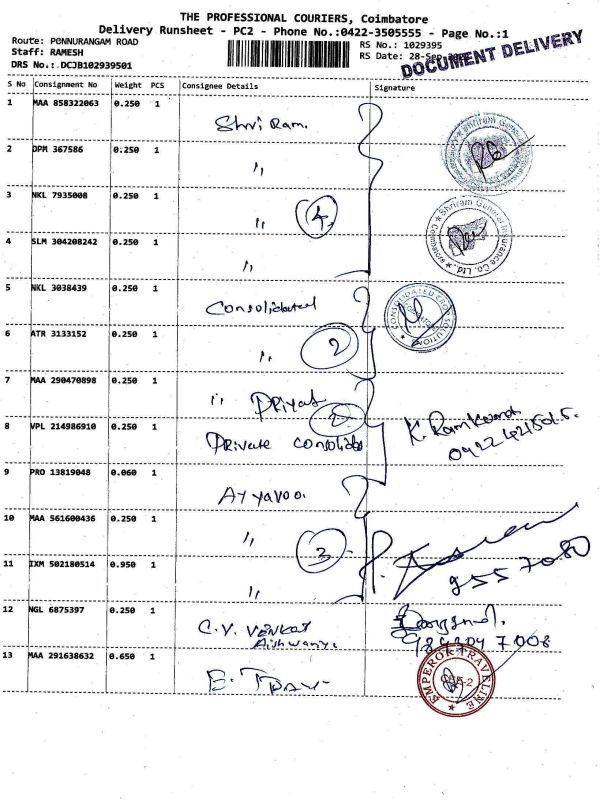 THE PROFESSIONAL COURIERS, Coimbatore
Delivery Runsheet - PC2 - Phone No.:0422-3505555 - Page No.:1
Route: PONNURANGAM ROAD
RS No.: 1029395
Staff: RAMESH
RS Date: 28-Sep
DRS No.:.DCJB102939501
DOCUMENT DELIVERY
S No Consignment No Weight PCS Consignee Details Signature
1 MAA 858322063 0.250 1 Shri Ram.
2 DPM 367586 0.250 1 "
Shriram General
3 NKL 7935008 0.250 1 " 4.
Shriram General Insurance Co. Ltd. ★ Coimbatore ★
4 SLM 304208242 0.250 1 "
5 NKL 3038439 0.250 1 Consolidated
CONSOLIDATED SOLUTION
6 ATR 3133152 0.250 1 " 2
7 MAA 290470898 0.250 1 "
8 VPL 214986910 0.250 1 Private consolida
2
K.
9 PRO 13819048 0.060 1 Ayyavoo.
10 MAA 561600436 0.250 1 "
3
P.
11 IXM 502180514 0.950 1 "
9557080
12 NGL 6875397 0.250 1 C.V. Venkat
Aishwarya
7008
13 MAA 291638632 0.650 1 E.
EMPEROR TRAVELINE
CBE-2